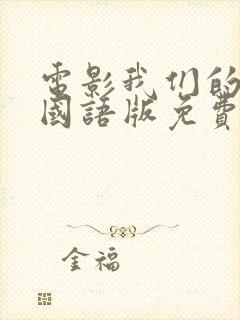 電影我们的
國語版免費
金福